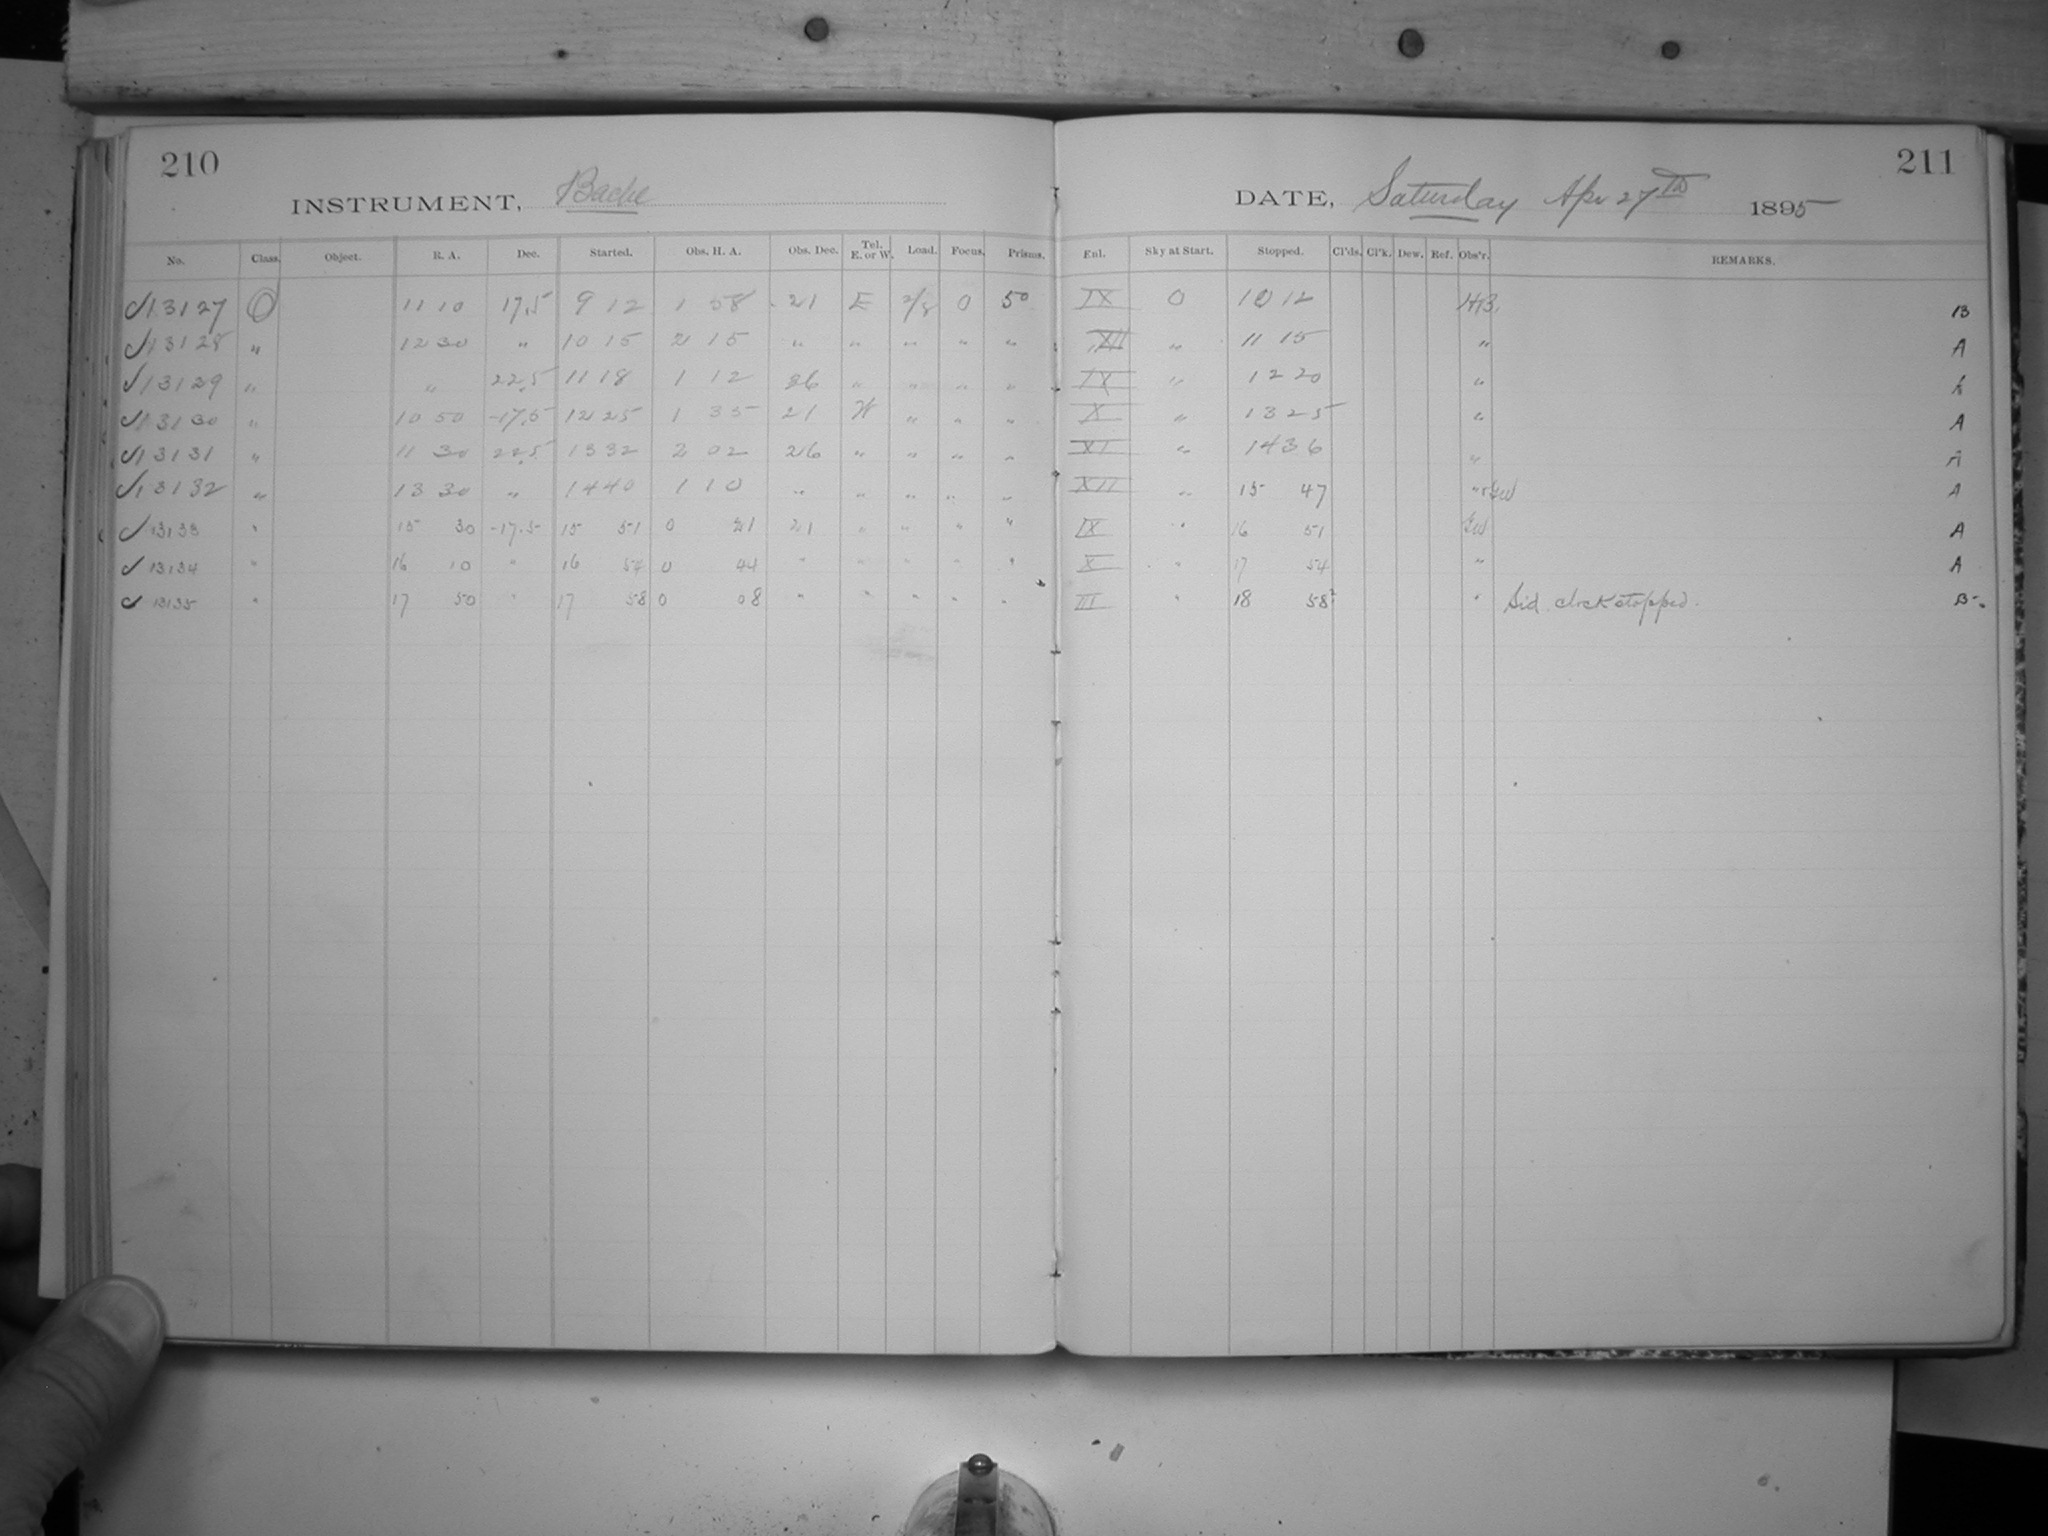 210
211
INSTRUMENT, Bache
DATE, Saturday Apr 27th 1895
No. Class. Object. R. A. Dec. Started. Obs. H. A. Obs. Dec. Tel. E. or W. Load. Focus. Prisms. Enl. Sky at Start. Stopped. Cl'ds. Cl'k. Dew. Ref. Obs'r. REMARKS.
✓13127 O 11 10 17.5 9 12 1 58 -21 E 2/8 0 50 IX 0 10 12 HB. B
✓13128 " 12 30 " 10 15 2 15 " " " " " XII " 11 15 " A
✓13129 " " 22.5 11 18 1 12 26 " " " " IX " 12 20 "
✓13130 " 10 50 -17.5 12 25 1 35 21 W " " " X " 13 25 " A
✓13131 " 11 30 22.5 13 32 2 02 26 " " " " XI " 14 36 " A
✓13132 " 13 30 " 14 40 1 10 " " " " " XII " 15 47 " A
✓13133 " 15 30 -17.5 15 51 0 21 21 " " " " IX " 16 51 A
✓13134 " 16 10 " 16 54 0 44 " " " " " X " 17 54 " A
✓13135 " 17 50 " 17 58 0 08 " " " " " III " 18 58 " Sid. clock stopped. B-.